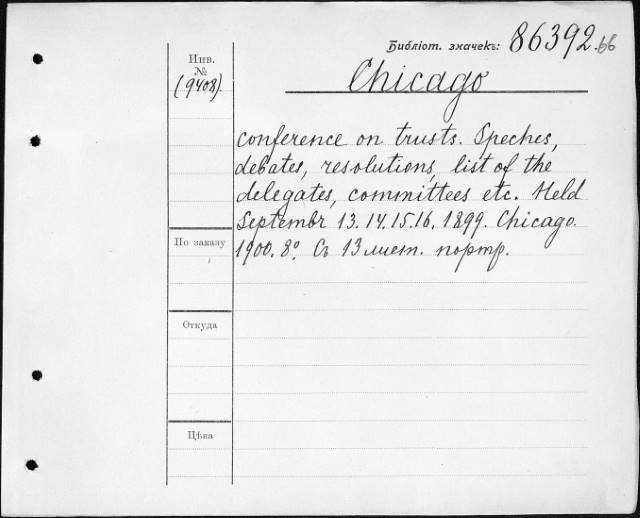 Библіот. значекъ: 86392.bb
Инв.
№
(9408).
Chicago
conference on trusts. Speches,
debates, resolutions, list of the
delegates, committees etc. Held
Septembr 13.14.15.16. 1899. Chicago.
1900. 8º. Съ 13 лист. портр.
По заказу
Откуда
Цѣна